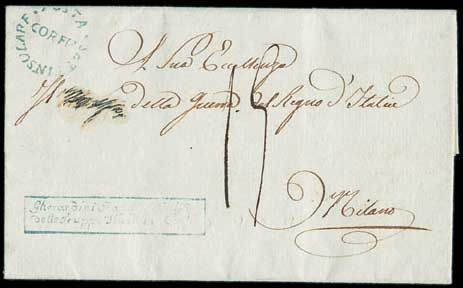 POSTA
INSULARE
CORFU
A Sua Eccellenza
Il della Guerra del Regno d'Italia
13
Milano
delle Truppe